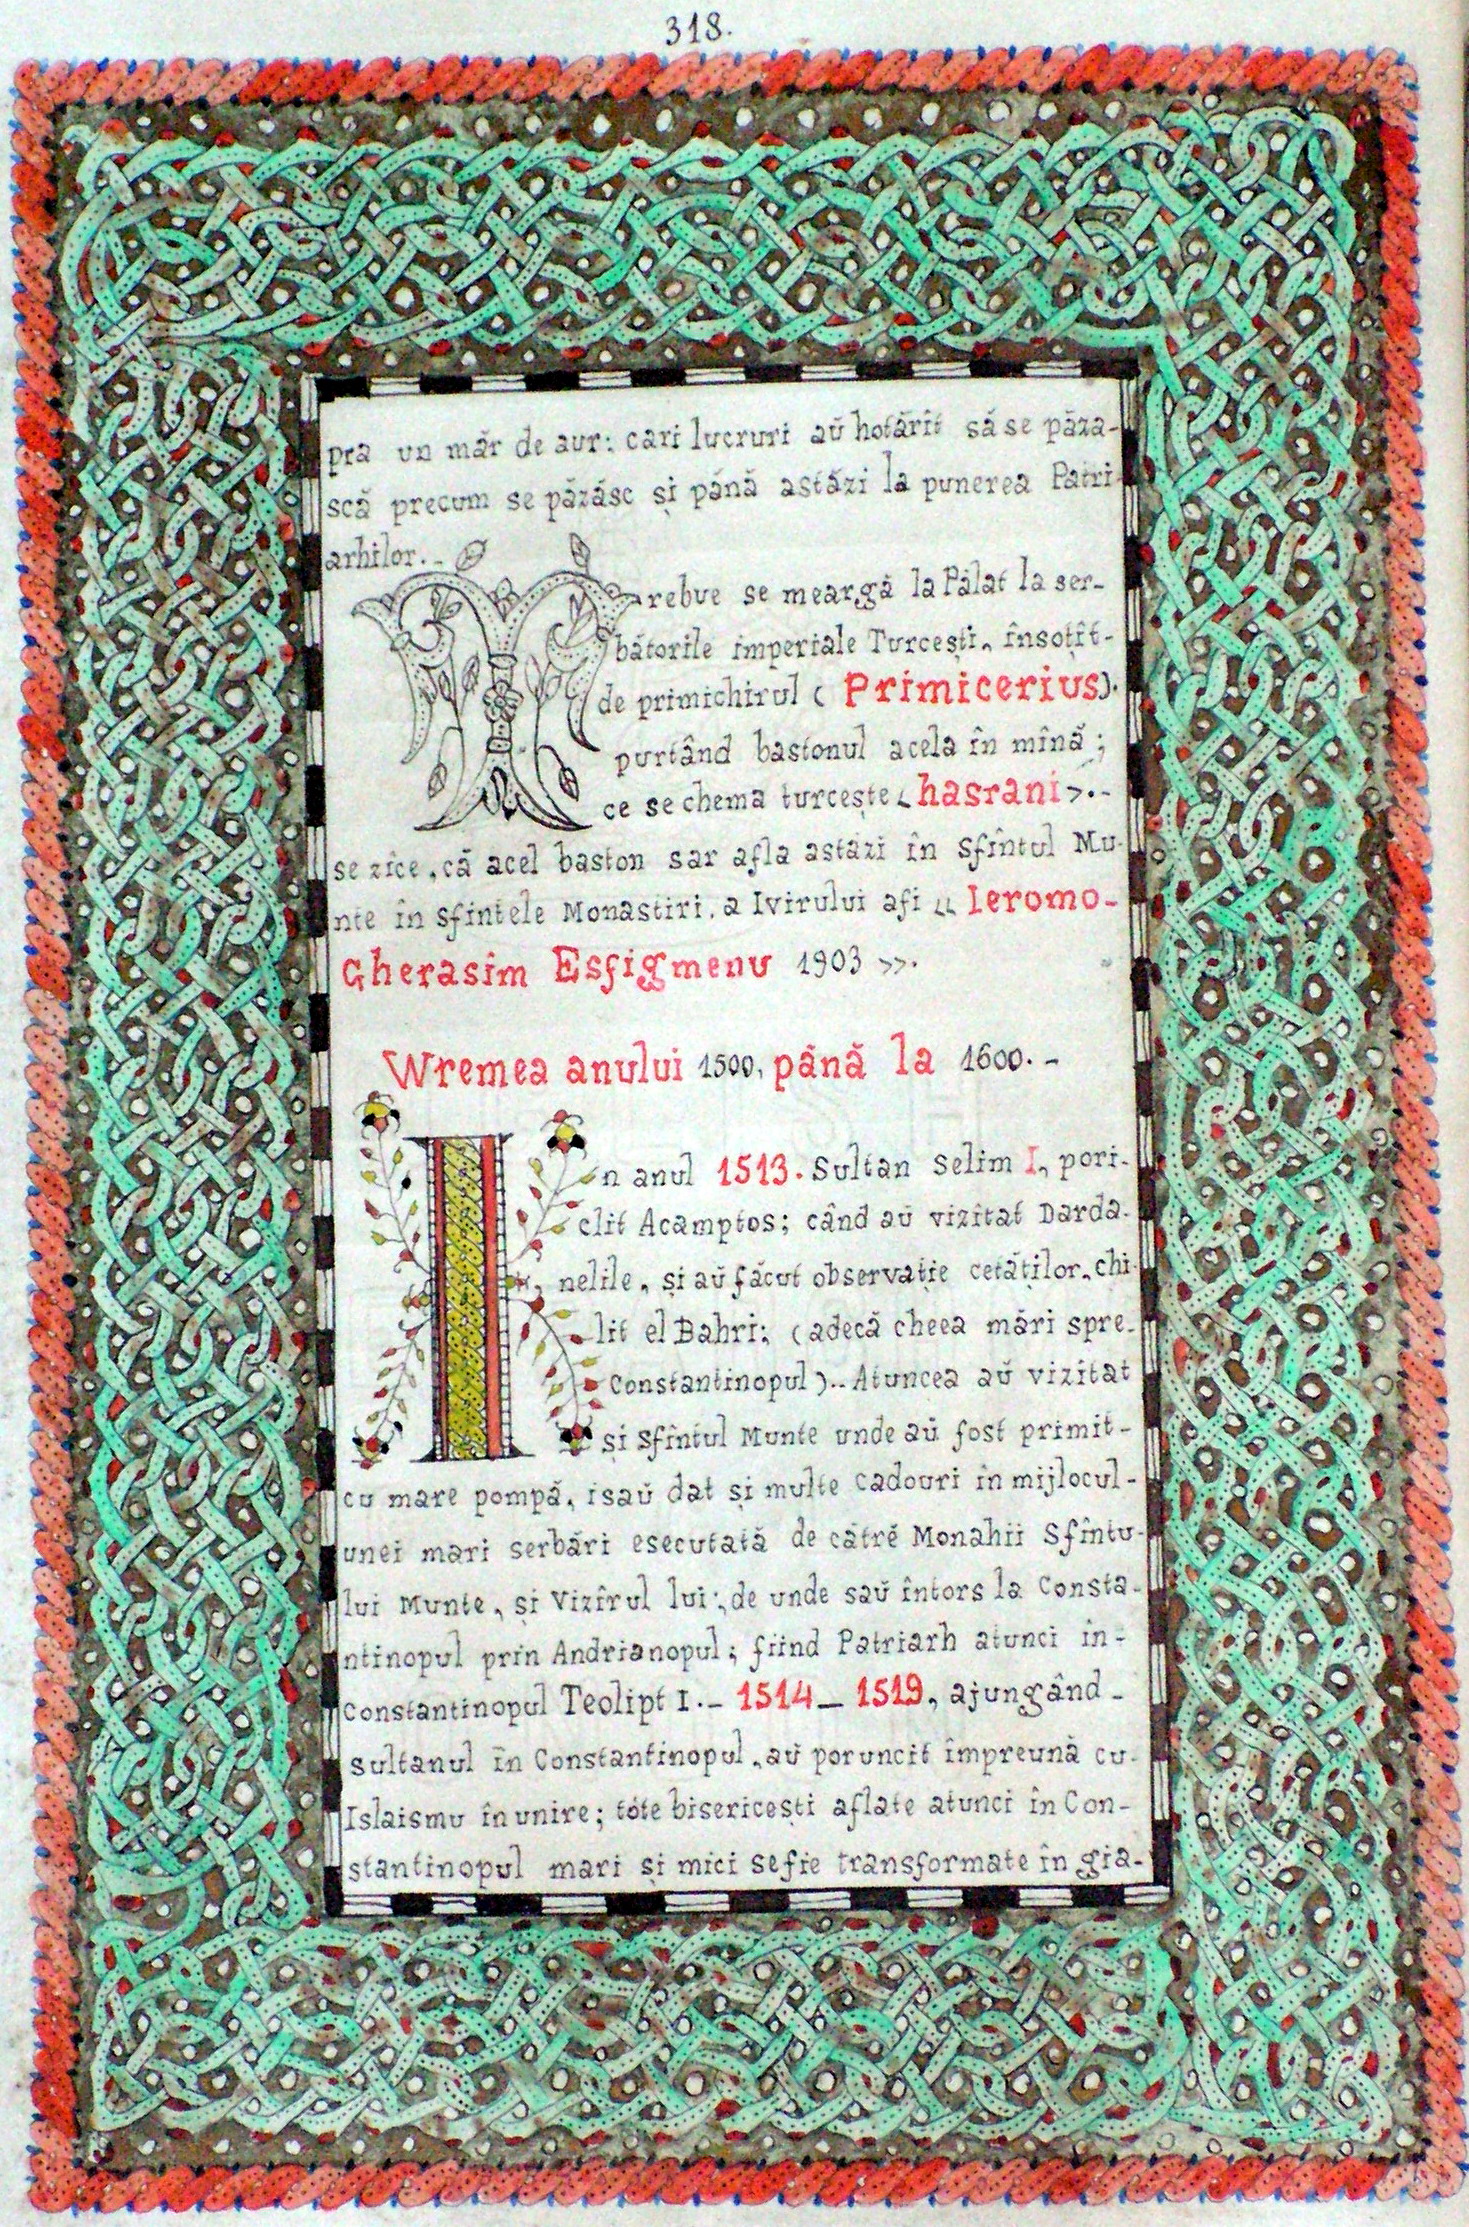 318.
pra un măr de aur: cari lucruri aŭ hotărît să se păza-
scă precum se păzăsc și până astăzi la punerea Patri-
arhilor.-
Trebue se meargă la Pălat la ser-
bătorile imperiale Turcești, însoțit-
de primichirul ( Primicerius).
purtând bastonul acela în mînă;
ce se chema turcește < hasrani >.-
se zice, că acel baston sar afla astăzi în Sfîntul Mu-
nte în sfintele Monastiri, a Ivirului afi << Ieromo-
Gherasim Esfigmenu 1903 >>.
Wremea anului 1500, până la 1600.-
In anul 1513. Sultan Selim I, pori-
clit Acamptos; când aŭ vizitat Darda-
nelile, și aŭ făcut observație cetăților, chi-
lit el Bahri; (adecă cheea mări spre-
Constantinopul).. Atuncea aŭ vizitat
și Sfîntul Munte unde aŭ fost primit-
cu mare pompă, isaŭ dat și multe cadouri în mijlocul-
unei mari serbări esecutată de cătrĕ Monahii Sfîntu-
lui Munte, și Vizîrul lui; de unde saŭ întors la Consta-
ntinopul prin Andrianopul; fiind Patriarh atunci în-
Constantinopul Teolipt I.- 1514 - 1519, ajungând -
Sultanul în Constantinopul, aŭ poruncit împreună cu-
Islaismu în unire; tóte bisericești aflate atunci în Con-
stantinopul mari și mici se fie transformate în gia-